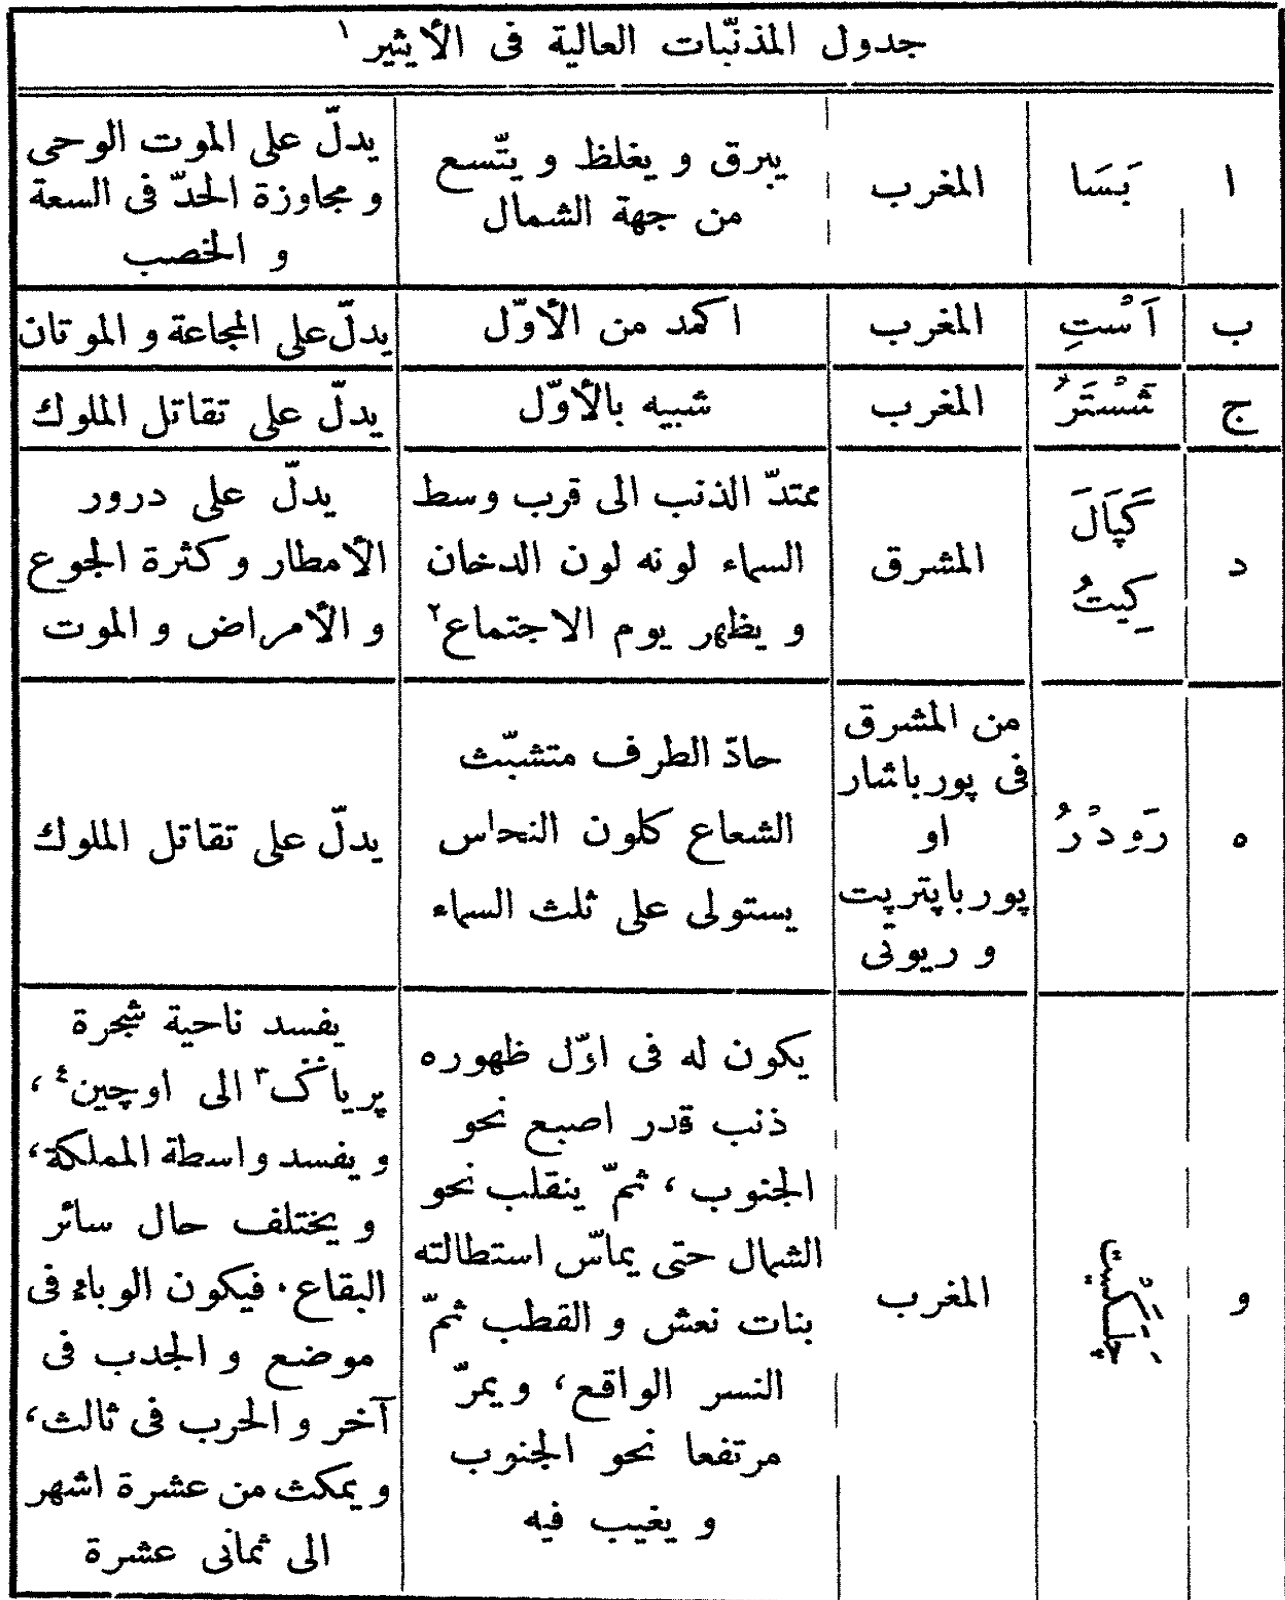 جدول المذنّبات العالية فى الأيثير ١
ا
بَسَا
المغرب
يبرق و يغلظ و يتّسع
من جهة الشمال
يدلّ على الموت الوحى
و مجاوزة الحدّ فى السعة
و الخصب
ب
اَسْتِ
المغرب
اكمد من الأوّل
يدلّ على المجاعة و الموتان
ج
شَسْتَرُ
المغرب
شبيه بالأوّل
يدلّ على تقاتل الملوك
د
كَپَالَ
كِيتُ
المشرق
ممتدّ الذنب الى قرب وسط
السماء لونه لون الدخان
و يظهر يوم الاجتماع ٢
يدلّ على درور
الأمطار و كثرة الجوع
و الأمراض و الموت
ه
رَودْرُ
من المشرق
فى پورباشار
او
پورباپترپت
و ريوتى
حادّ الطرف متشبّث
الشعاع كلون النحاس
يستولى على ثلث السماء
يدلّ على تقاتل الملوك
و
چَلَكِيتُ
المغرب
يكون له فى اوّل ظهوره
ذنب قدر اصبع نحو
الجنوب ، ثمّ ينقلب نحو
الشمال حتى يماسّ استطالته
بنات نعش و القطب ثمّ
النسر الواقع ، و يمرّ
مرتفعا نحو الجنوب
و يغيب فيه
يفسد ناحية شجرة
پرياݣ ٣ الى اوچين ٤ ،
و يفسد واسطة المملكة ،
و يختلف حال سائر
البقاع . فيكون الوباء فى
موضع و الجدب فى
آخر و الحرب فى ثالث ،
و يمكث من عشرة اشهر
الى ثمانى عشرة